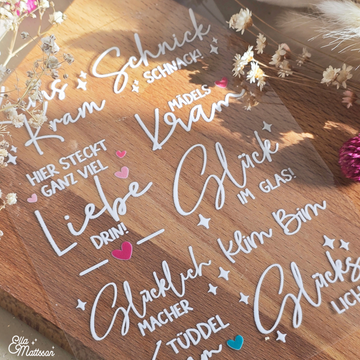 Kram
Schnick
SCHNACK!
MÄDELS
Kram
HIER STECKT
GANZ VIEL
Liebe
DRIN!
Glück
IM GLAS!
Klim Bim
Glücklich
MACHER
TÜDDEL
Glücks
Ella
Mattsson